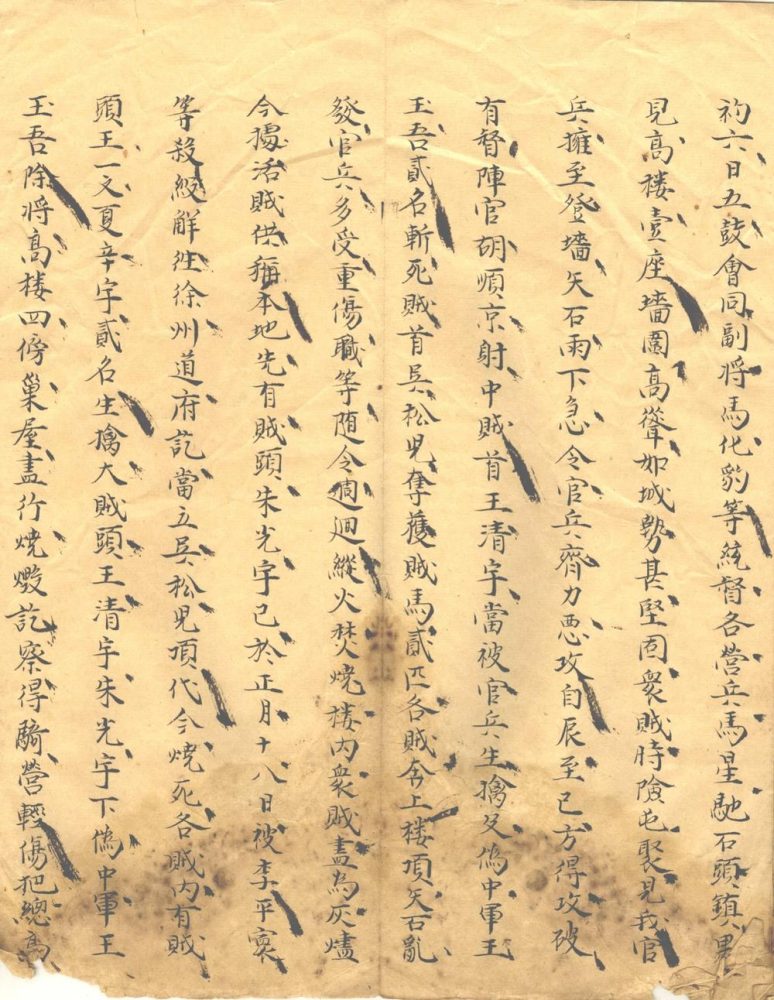 初六日五鼓會同副將馬化豹等統督各營兵馬星馳石頭鎮果
見高樓壹座墻圍高聳如城勢甚堅固衆賊恃險屯聚見我官
兵擁至登墻矢石雨下急令官兵齊力悪攻自辰至巳方得攻破
有督陣官胡順京射中賊首王清宇當被官兵生擒及偽中軍王
玉吾貳名斬死賊首吳松児奪獲賊馬貳匹各賊奔上楼頂矢石亂
發官兵多受重傷職等随令週迴縱火焚燒楼内衆賊盡為灰燼
今據活賊供稱本地先有賊頭朱光宇已於正月十八日被李平寰
等殺綬解徃徐州道府訖當立吳松児頂代今燒死各賊内有賊
頭王一文夏辛宇貳名生擒大賊頭王清宇朱光宇下偽中軍王
玉吾除將高楼四傍巢屋盡行燒燬訖察得騎營輕傷把總高